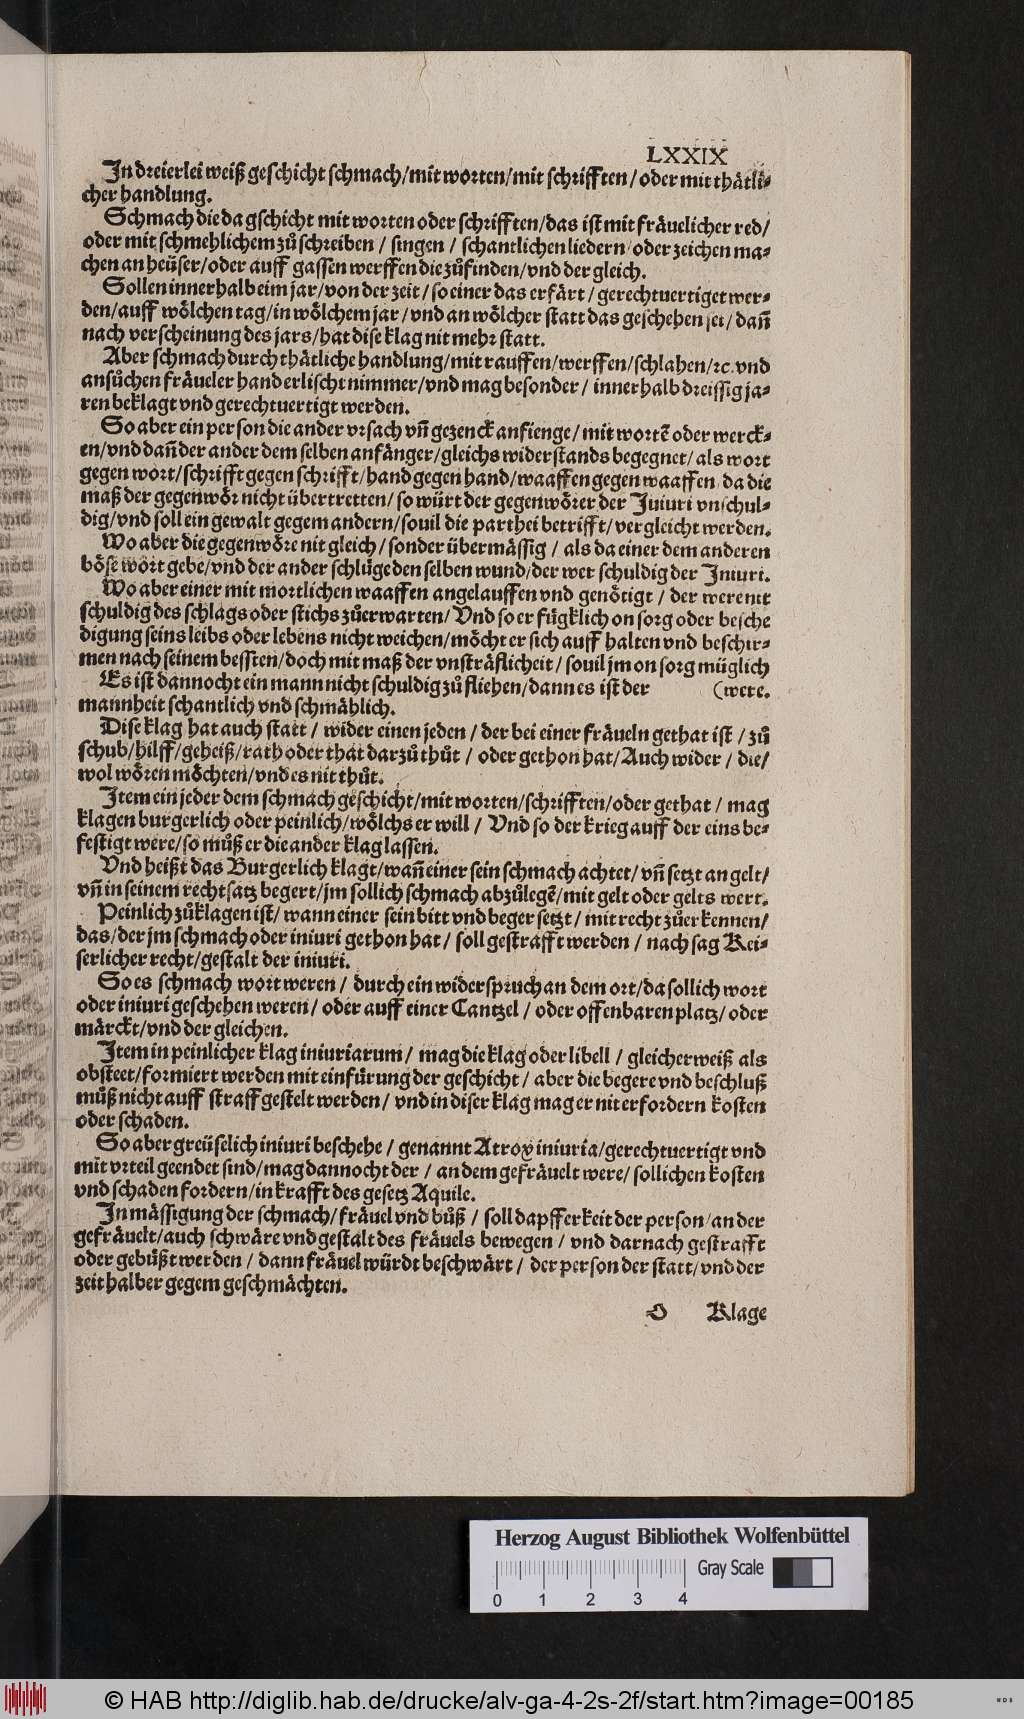 LXXIX
In dreierlei weiß geschicht schmach/mit worten/mit schrifften/oder mit thätli-
cher handlung.
Schmach die da gschicht mit worten oder schrifften/das ist mit fräuelicher red/
oder mit schmehlichem zůschreiben / singen / schantlichen liedern/oder zeichen ma-
chen an heüser/oder auff gassen werffen die zůfinden/vnd der gleich.
Sollen innerhalb eim jar/von der zeit/so einer das erfärt/gerechtuertiget wer-
den/auff wölchen tag/in wölchem jar/vnd an wölcher statt das geschehen sei/dañ
nach verscheinung des jars/hat dise klag nit mehr statt.
Aber schmach durch thätliche handlung/mit rauffen/werffen/schlahen/ꝛc.vnd
ansůchen fräueler hand erlischt nimmer/vnd mag besonder / innerhalb dreissig ja-
ren beklagt vnd gerechtuertigt werden.
So aber ein person die ander vrsach vñ gezenck anfienge/mit wortẽ oder werck-
en/vnd dañ der ander dem selben anfänger/gleichs widerstands begegnet/als wort
gegen wort/schrifft gegen schrifft/hand gegen hand/waaffen gegen waaffen/da die
maß der gegenwör nicht übertretten/so würt der gegenwörer der Iniuri vnschul-
dig/vnd soll ein gewalt gegem andern/souil die parthei betrifft/vergleicht werden.
Wo aber die gegenwöre nit gleich/sonder übermässig / als da einer dem anderen
böse wort gebe/vnd der ander schlüge den selben wund/der wer schuldig der Iniuri.
Wo aber einer mit mortlichen waaffen angelauffen vnd genötigt / der were nit
schuldig des schlags oder stichs zůerwarten/Vnd so er fügklich on sorg oder besche
digung seins leibs oder lebens nicht weichen/möcht er sich auff halten vnd beschir-
men nach seinem bessten/doch mit maß der vnsträflicheit/souil jm on sorg müglich
Es ist dannocht ein mann nicht schuldig zů fliehen/dann es ist der (were.
mannheit schantlich vnd schmählich.
Dise klag hat auch statt / wider einen jeden / der bei einer fräueln gethat ist / zů
schub/hilff/geheiß/rath oder that darzů thůt / oder gethon hat/Auch wider / die/
wol wören möchten/vnd es nit thůt.
Item ein jeder dem schmach geschicht/mit worten/schrifften/oder gethat / mag
klagen burgerlich oder peinlich/wölchs er will / Vnd so der krieg auff der eins be-
festigt were/so můß er die ander klag lassen.
Vnd heißt das Burgerlich klagt/wañ einer sein schmach achtet/vñ setzt an gelt/
vñ in seinem rechtsatz begert/jm sollich schmach abzůlegẽ/mit gelt oder gelts wert.
Peinlich zůklagen ist/wann einer sein bitt vnd beger setzt / mit recht zůerkennen/
das/der jm schmach oder iniuri gethon hat / soll gestrafft werden / nach sag Kei-
serlicher recht/gestalt der iniuri.
So es schmach wort weren / durch ein widerspruch an dem ort/da sollich wort
oder iniuri geschehen weren / oder auff einer Cantzel / oder offenbaren platz/oder
märckt/vnd der gleichen.
Item in peinlicher klag iniuriarum / mag die klag oder libell / gleicher weiß als
obsteet/formiert werden mit einfürung der geschicht/ aber die begere vnd beschluß
můß nicht auff straff gestelt werden/ vnd in diser klag mag er nit erfordern kosten
oder schaden.
So aber greüselich iniuri beschehe / genannt Atrox iniuria/gerechtuertigt vnd
mit vrteil geendet sind/mag dannocht der / an dem gefräuelt were/sollichen kosten
vnd schaden fordern/in krafft des gesetz Aquile.
In mässigung der schmach/fräuel vnd bůß / soll dapfferkeit der person/an der
gefräuelt/auch schwäre vnd gestalt des fräuels bewegen / vnd darnach gestrafft
oder gebüßt werden / dann fräuel würdt beschwärt / der person der statt/vnd der
zeit halber gegem geschmächten.
O Klage
Herzog August Bibliothek Wolfenbüttel
Gray Scale
0 1 2 3 4
© HAB http://diglib.hab.de/drucke/alv-ga-4-2s-2f/start.htm?image=00185